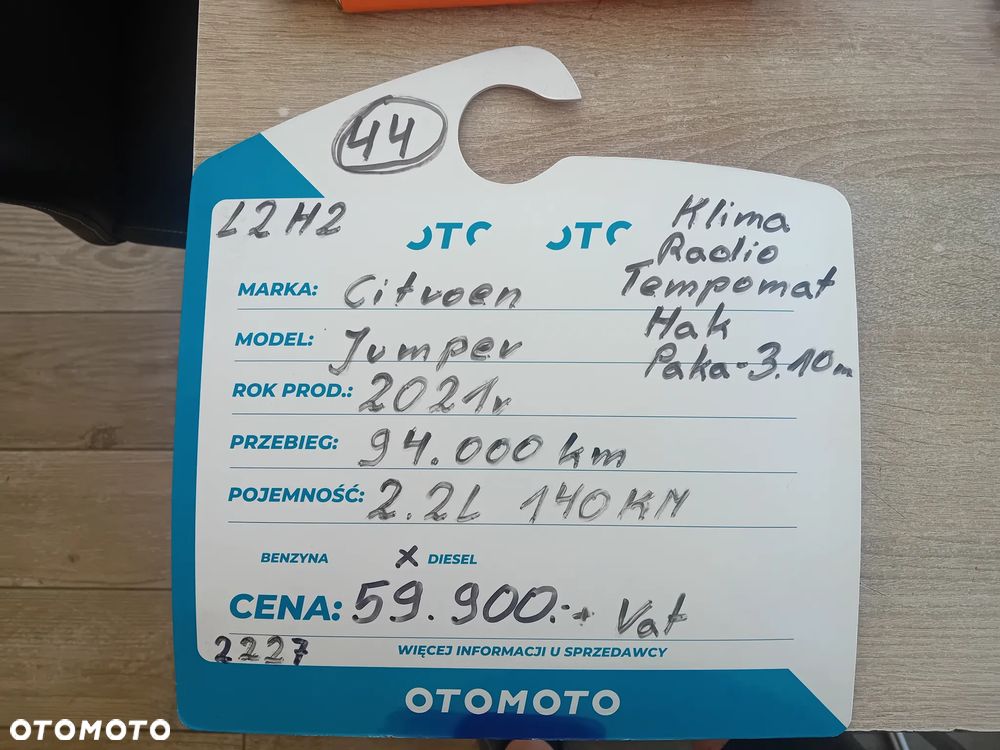 44
L2H2
OTO OTO
Klima
Radio
Tempomat
Hak
Paka-3.10m
MARKA: Citroen
MODEL: Jumper
ROK PROD.: 2021r
PRZEBIEG: 94.000 km
POJEMNOŚĆ: 2.2L 140KM
BENZYNA X DIESEL
CENA: 59.900.-+ Vat
2227
WIĘCEJ INFORMACJI U SPRZEDAWCY
OTOMOTO
OTOMOTO